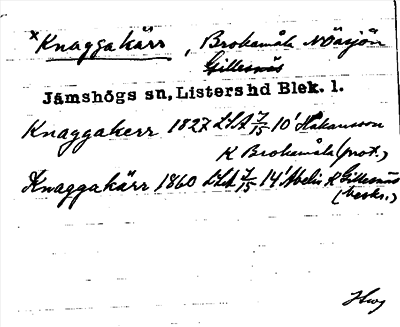 x Knaggakärr, Brokamåla NÖasjön
Gillesnäs
Jämshögs sn, Listers hd Blek. l.
Knaggakerr 1827 LSA 7/15 10' Håkansson
K Brokamåla (prot.)
Knaggakärr 1860 LSA 7/15 14' Abelin K Gillesnäs
(beskr.)